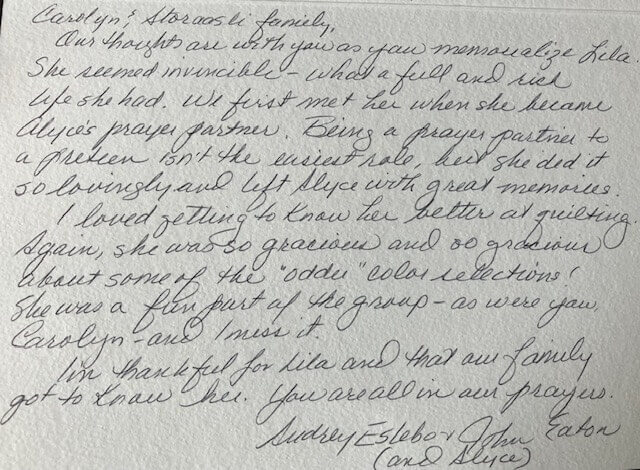 Carolyn & Storaasli family,
Our thoughts are with you as you memorialize Lila.
She seemed invincible - what a full and rich
life she had. We first met her when she became
Alyce's prayer partner. Being a prayer partner to
a preteen isn't the easiest role, but she did it
so lovingly and left Alyce with great memories.
I loved getting to know her better at quilting.
Again, she was so gracious and so gracious
about some of the "odder" color selections!
She was a fun part of the group - as were you,
Carolyn - and I miss it.
I'm thankful for Lila and that our family
got to know her. You are all in our prayers.
Audrey John Eaton
(and Alyce)